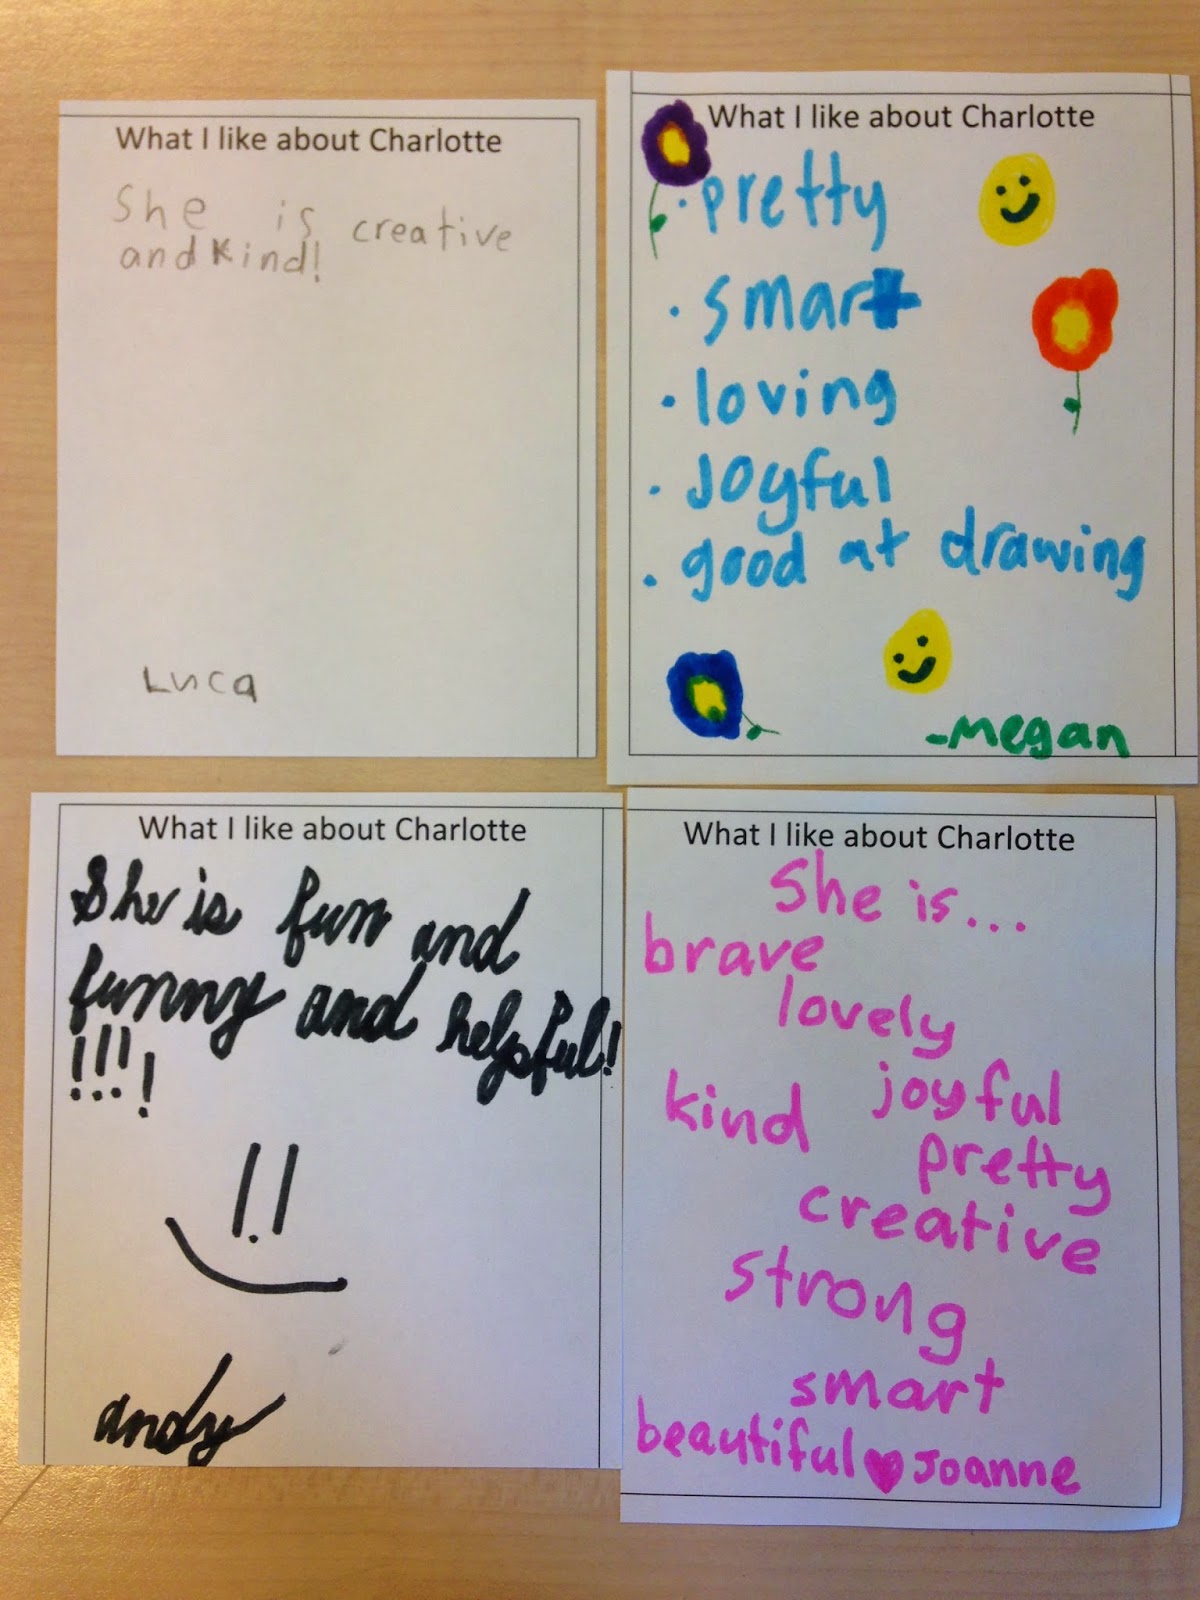 What I like about Charlotte
She is creative
and kind!
Luca
What I like about Charlotte
· pretty
· smart
· loving
· Joyful
· good at drawing
-Megan
What I like about Charlotte
She is fun and
funny and helpful!
!!!!
andy
What I like about Charlotte
She is...
brave
lovely
kind joyful
pretty
creative
strong
smart
beautiful ♥ Joanne